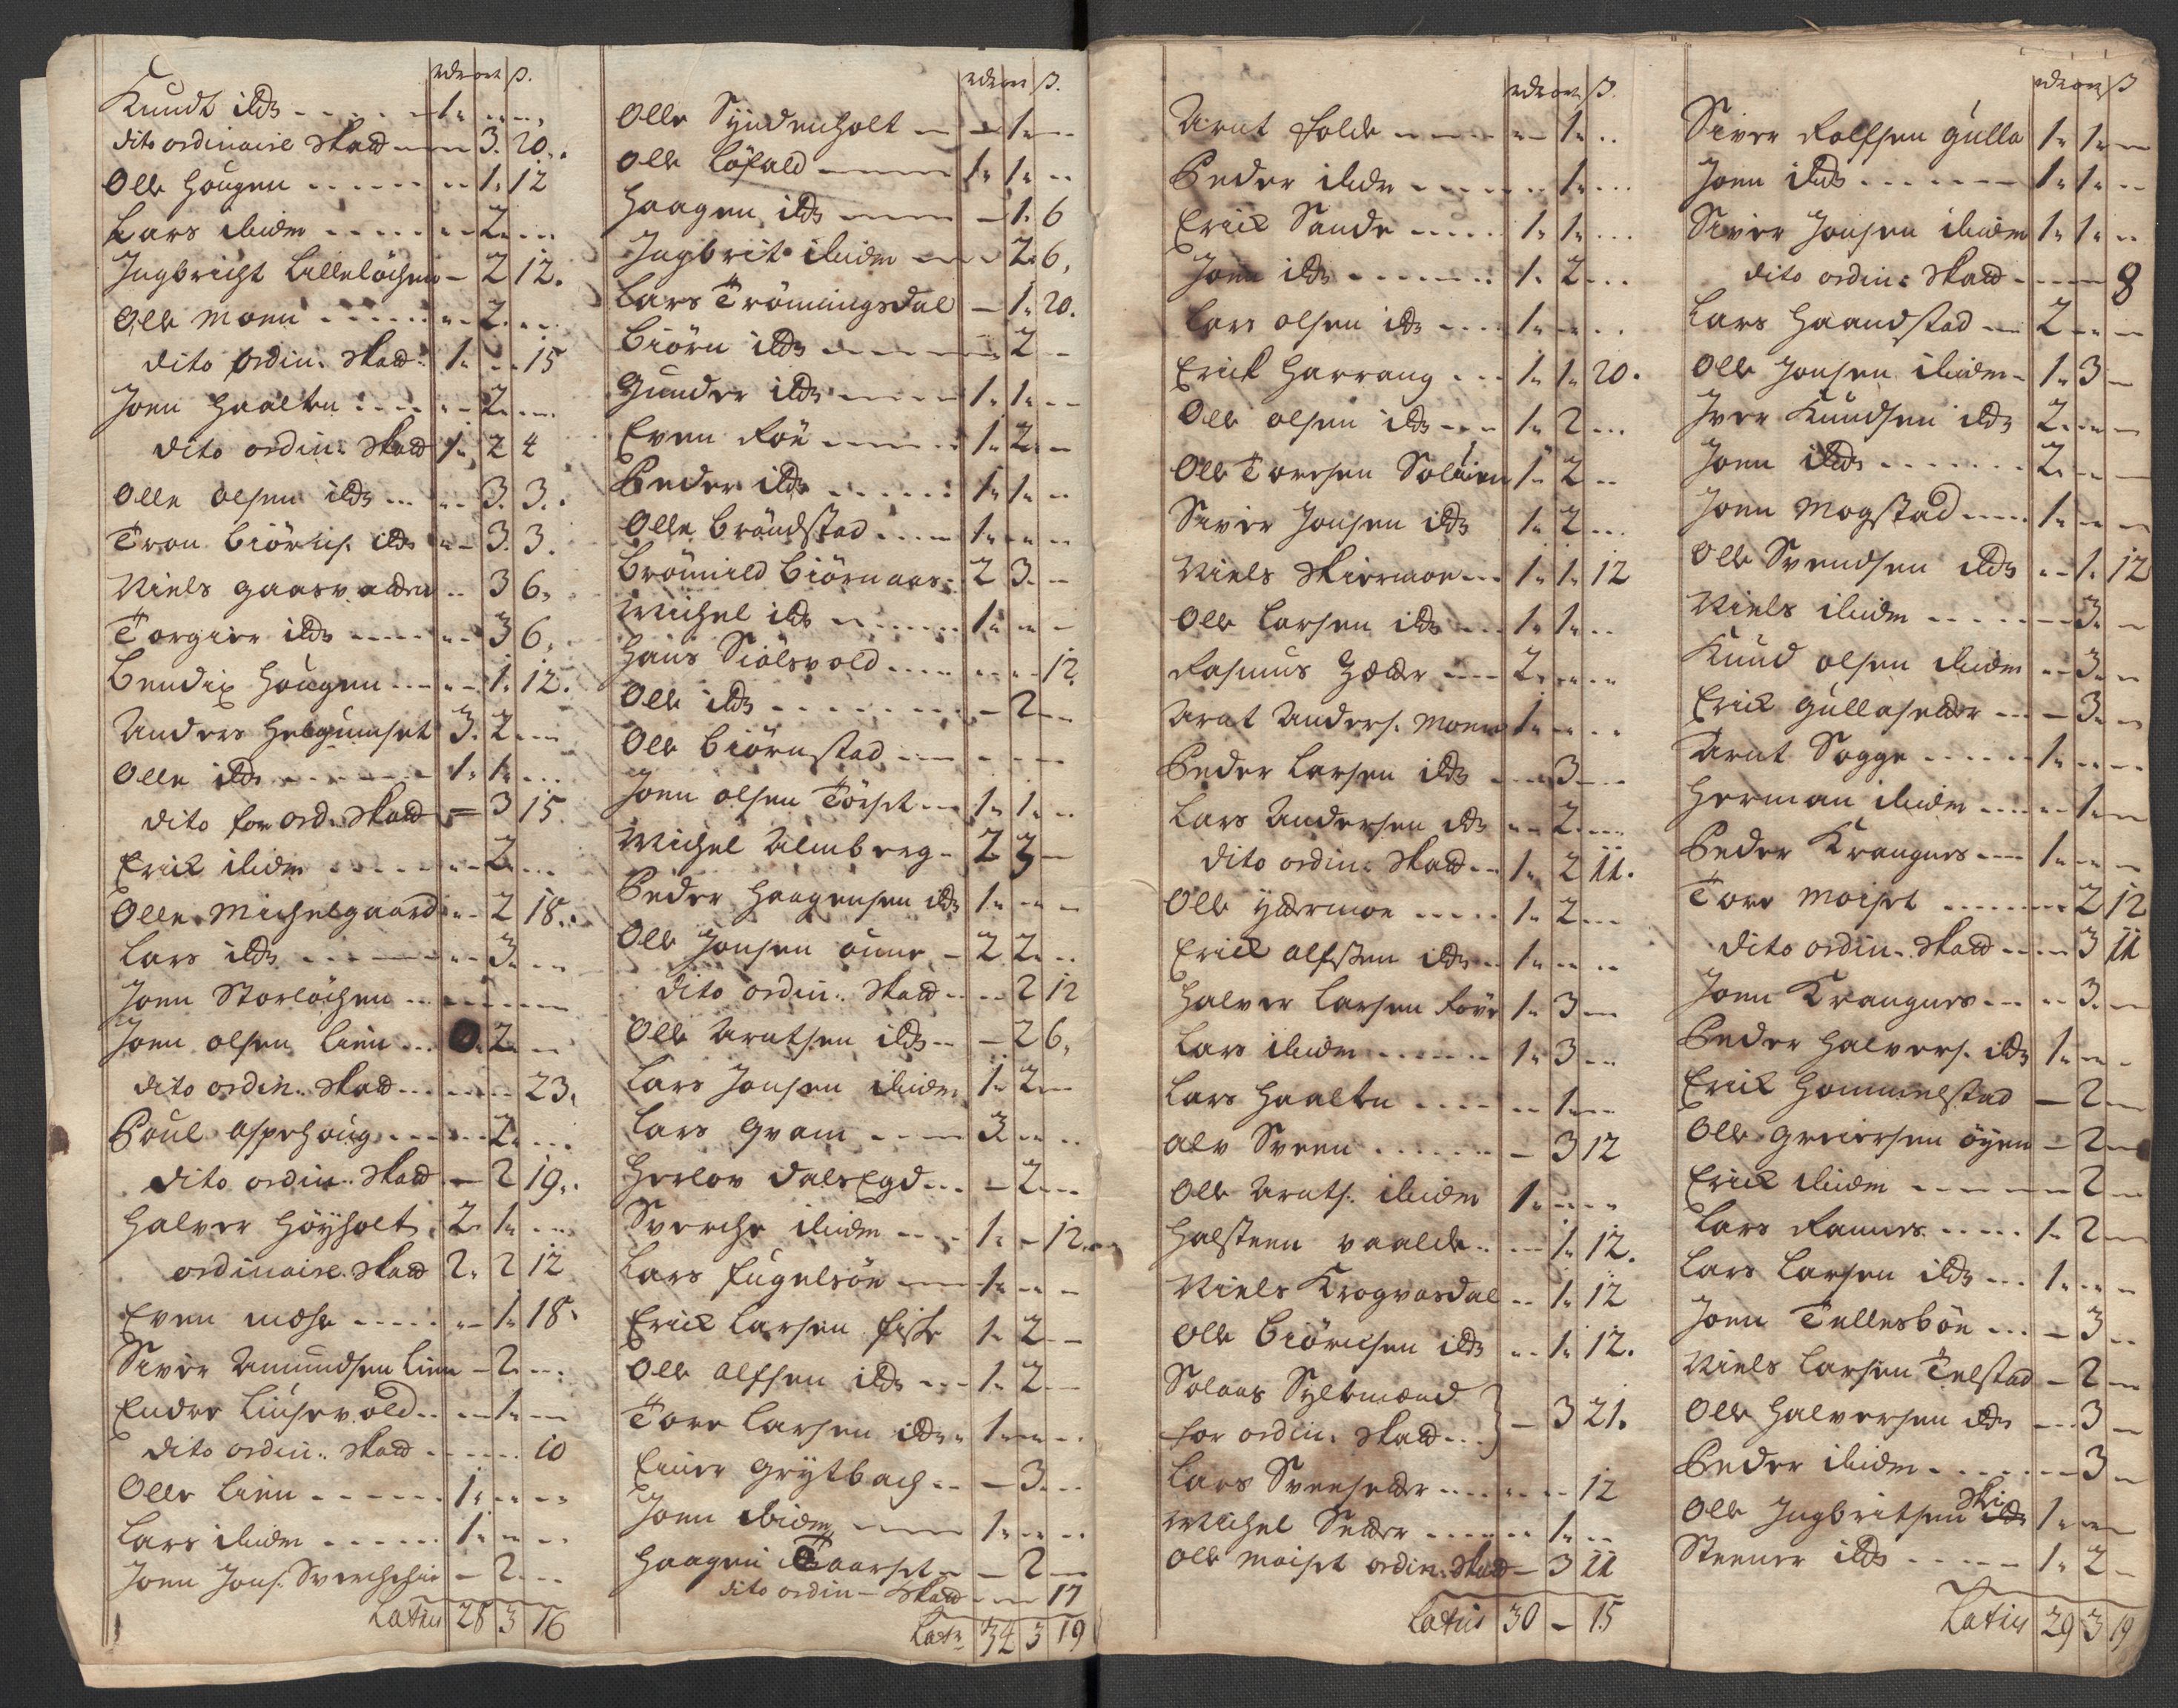 rdr ort ß.
Knudt ibd – 1 – –
dito ordinaire Skatt – 3. 20.
Olle Hougen – 1. 12
Lars ibidm – 2. –
Ingbricht Lillelöchen – 2 12.
Olle Moen – 2. –
dito ordin: Skatt 1. – 15
Joen Haalten – 2. –
dito ordin: Skatt 1. 2 4
Olle Olsen ibd – 3. 3.
Tron Biörns. ibd – 3. 3.
Niels Gaasvatten – 3 6.
Torgier ibd – 3 6.
Bendix Hougen – 1. 12.
Anders Helgumset 3. 2. –
Olle ibd – 1. 1. –
dito for ord. Skatt – 3 15.
Erick ibidm – 2. –
Olle Michelgaard – 2 18.
Lars ibd – 3. –
Joen Storlöchen – – –
Joen Olsen Lien 0. 2. –
dito ordin. Skatt – – 23.
Poul Aspehoug – 2. –
dito ordin. Skatt – 2 19.
Halver Höyholt 2. 1. –
ordinaire Skatt 2. 2 12
Even Mæhe – 1. 18.
Siver Amundsen Lien – 2. –
Endre Liusevold – 1. –
dito ordin. Skatt – – 10
Olle Lien 1. – –
Lars ibidm 1. – –
Joen Jons. – 2. –
Latus 28 3 16
rdr ort ß.
Olle Syndenholt – 1. –
Olle Löfald 1. 1. –
Haagen ibd – 1. 6
Ingbrit ibidm – 2. 6.
Lars Trönningsdal – 1. 20.
Biörn ibd – 2 –
Gunder ibd 1. 1. –
Even Röe 1. 2. –
Peder ibd 1. 1. –
Olle Bröndstad 1. – –
Brönild Biörnaas 2 3. –
Michel ibd 1. – –
Hans Siölsvold – – 12.
Olle ibd – 2 –
Olle Biörnstad – – –
Joen Olsen Törset 1. 1. –
Michel Almberg 2 3 –
Peder Haagensen ibd 1. – –
Olle Jonsen 2 2. –
dito ordin. Skatt – 2 12
Olle Arntsen ibd – 2 6.
Lars Jonsen ibidm 1. 2 –
Lars Qvam 3. – –
Herlov DalsEgd – 2. –
Sverche ibidm 1. – 12.
Lars Fugelsöe 1. – –
Erick Larsen Fiske 1. 2 –
Olle Alfsen ibd 1. 2 –
Tore Larsen ibd 1. – –
Einer Grytbach – 3. –
Joen ibidm 1. – –
Haagen Taarset – 2 –
dito ordin. Skatt – – 17
Lat: 34 3 19
rdr ort ß.
Arnt Holde – 1. –
Peder ibidm – 1. –
Erick Sande 1. 1. –
Joen ibd 1. 2 –
Lars Olsen ibd 1. – –
Erick Harrang 1. 1. 20.
Olle Olsen ibd 1. 2 –
Olle Toresen Solliem 1. 2 –
Siver Jonsen ibd 1. 2 –
Niels Skiermoe 1. 1. 12
Olle Larsen ibd 1. 1. –
Rasmus 2. – –
Arnt Anders. Moen 1. – –
Peder Larsen ibd – 3 –
Lars Andersen ibd – 2. –
dito ordin. Skatt 1. 2 11.
Olle Yttermoe 1. 2 –
Erick Alfsen ibd 1. – –
Halver Larsen Föye 1. 3 –
Lars ibidm 1. 3 –
Lars Haalten – 1. –
Alv Sveen – 3 12
Olle Arnts. ibidm 1. – –
Halsteen Vaalde – 1. 12.
Niels Krogvasdal – 1. 12
Olle Biörnsen ibd – 1. 12.
Solaas Syltemænd
for ordin. Skatt – 3 21.
Lars Sveesetter – – 12
Michel Setter – 1. –
Olle Moiset ordin. Skatt – 3 11
Latus 30 – 15
rdr ort ß
Siver Rolfsen Gulla 1. 1. –
Joen ibd 1. 1. –
Siver Jonsen ibidm 1. 1. –
dito ordin: Skatt – – 8
Lars Haandstad 2 – –
Olle Jonsen ibidm 1. 3 –
Iver Knudsen ibd 2. – –
Joen ibd 2. – –
Joen Mogstad 1. – –
Olle Svendsen ibd – 1. 12
Niels ibidm – 3. –
Knud Olsen ibidm – 3. –
Erick Gullasetter – 3. –
Arnt Sogge 1. – –
Herman ibidm – 1. –
Peder Krangnes 1. – –
Tore Moiset – 2 12
dito ordin. Skatt – 3 11
Joen Krangnes – 3. –
Peder Halvers. ibd 1. – –
Erick Hommelstad – 2 –
Olle Greiersen Öyen – 2 –
Erick ibidm – 2 –
Lars Ramnes 1. 2 –
Lars Larsen ibd 1. – –
Joen Tellesböe – 3 –
Niels Larsen Telstad – 2 –
Olle Halversen ibd – 3 –
Peder ibidm – 3 –
Olle Ingbritsen Ski 1. – –
Steener ibd 1. 2 –
Latus 29 3 19